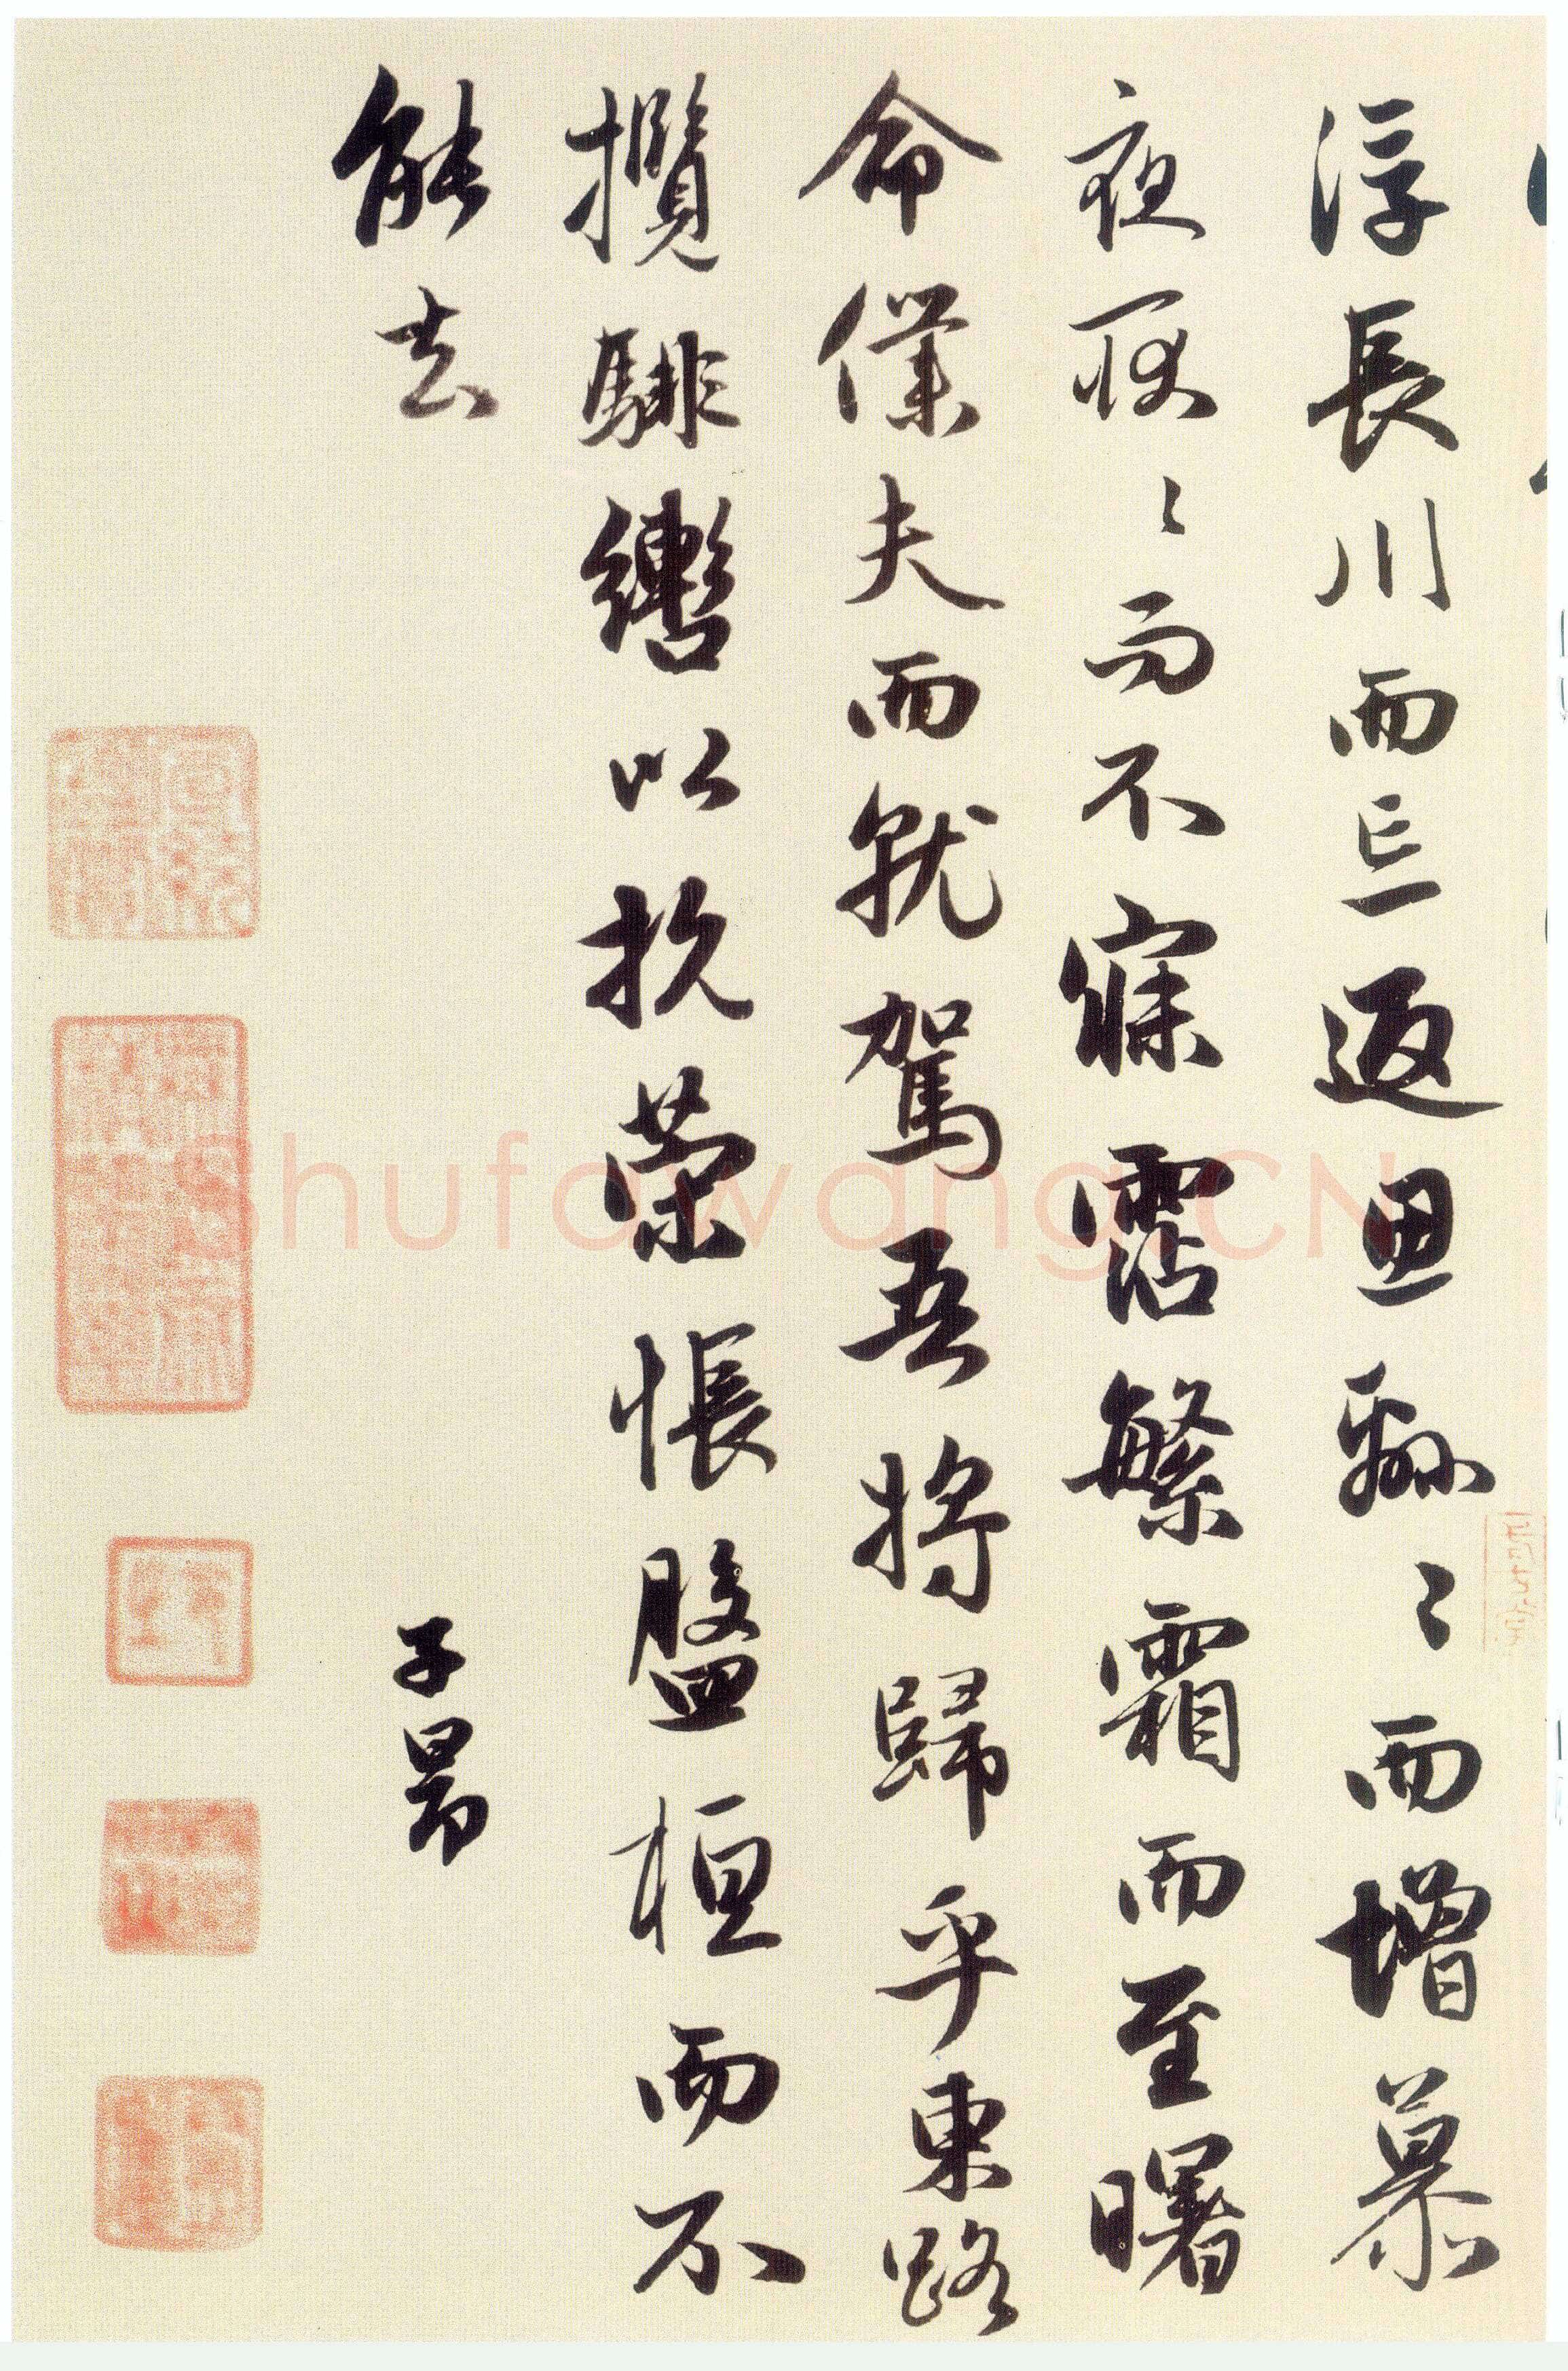 浮長川而忘返思緜〻而增慕
夜耿〻而不寐霑繁霜而至曙
命僕夫而就駕吾將歸乎東路
攬騑轡以抗策悵盤桓而不
能去
子昂
Shufawang.CN